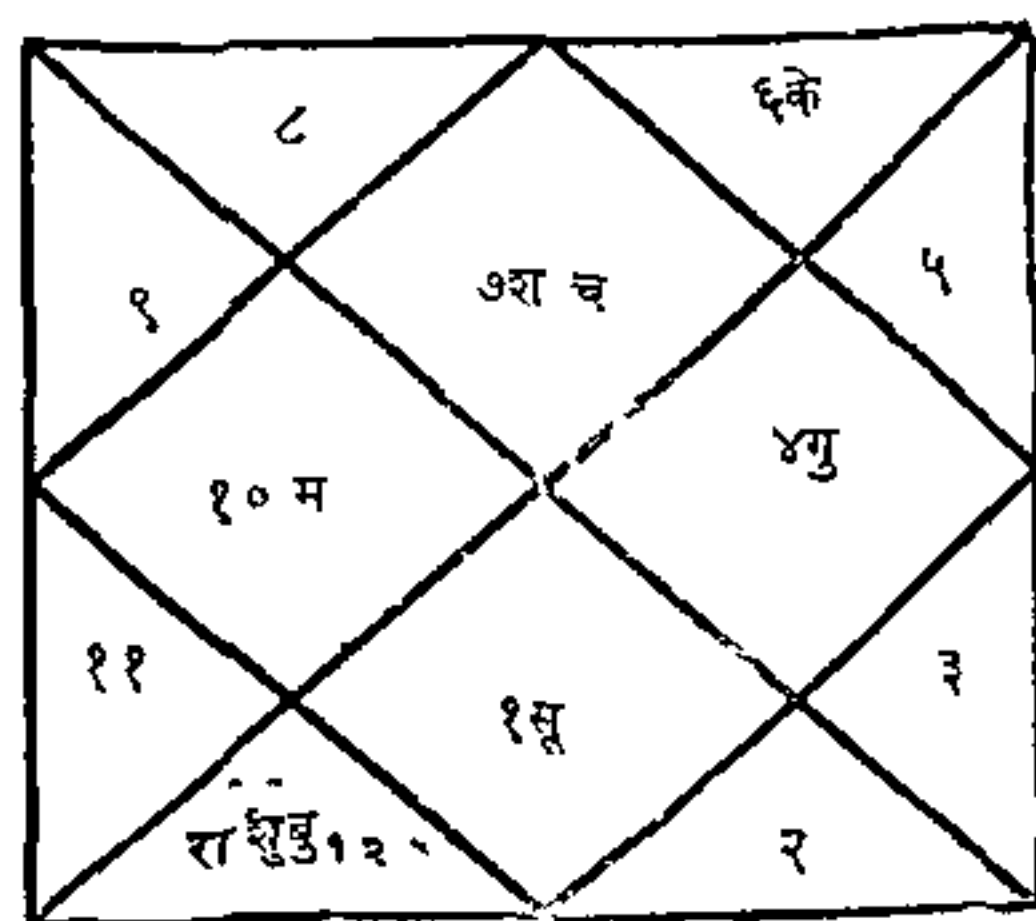 ८
६के
९
७श च
५
१० म
४गु
११
१सू
३
रा शुबु १२
२